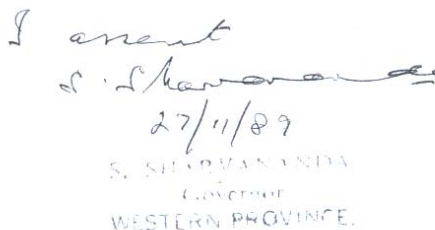 I assent
S. Sharvananda
27/11/89
S. SHARVANANDA
Governor
WESTERN PROVINCE.